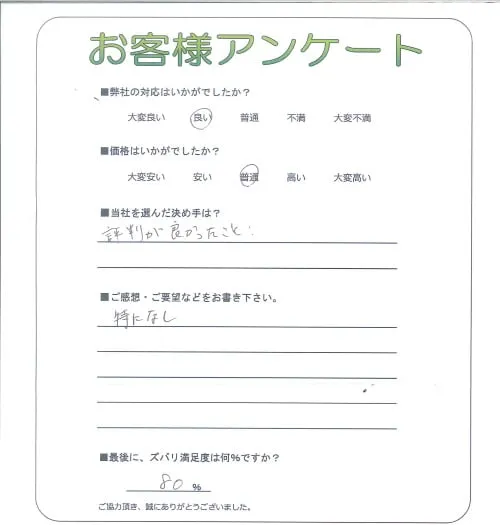 お客様アンケート
■弊社の対応はいかがでしたか？
大変良い 良い 普通 不満 大変不満
■価格はいかがでしたか？
大変安い 安い 普通 高い 大変高い
■当社を選んだ決め手は？
評判が良かったこと.
■ご感想・ご要望などをお書き下さい。
特になし
■最後に、ズバリ満足度は何%ですか？
80 %
ご協力頂き、誠にありがとうございました。